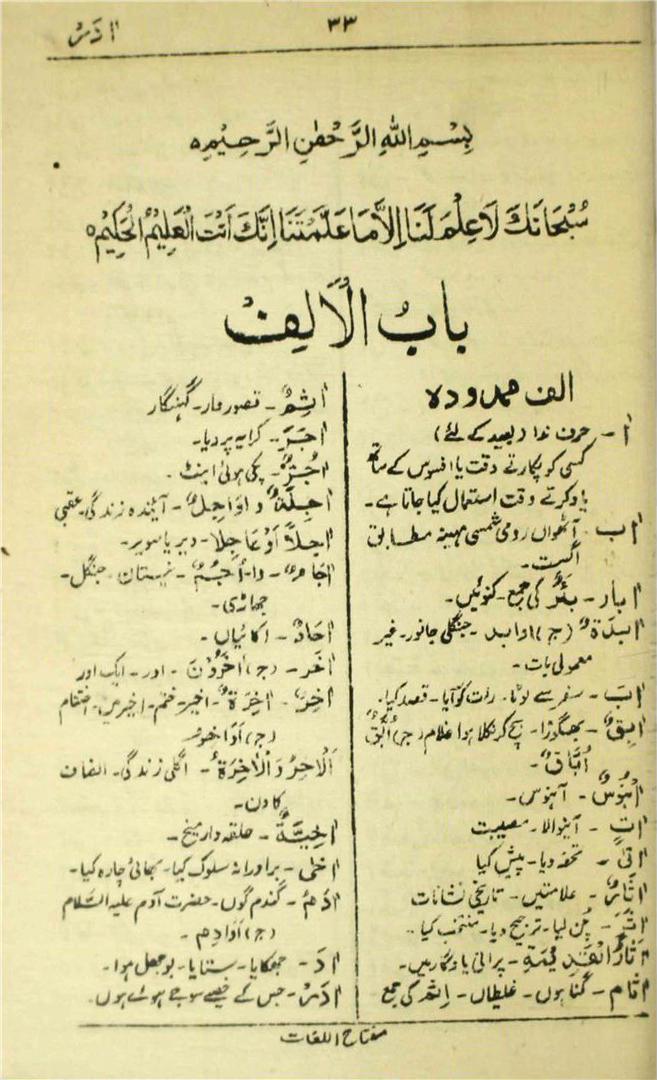 اٰدَرُ
۳۳
بِسْمِ اللهِ الرَّحْمٰنِ الرَّحِیْمِ
سُبْحَانَكَ لَا عِلْمَ لَنَا اِلَّا مَا عَلَّمْتَنَا اِنَّكَ اَنْتَ الْعَلِیْمُ الْحَكِیْمُ
بابُ الْاَلِفْ
الف ممدودہ
آ - حرف ندا (بعید کے لئے)
کسی کو پکارتے وقت یا افسوس کے ساتھ
یاد کرتے وقت استعمال کیا جاتا ہے۔
اٰب - آٹھواں رومی شمسی مہینہ مطابق
اگست۔
اٰبار - بِئْرٌ کی جمع۔ کنوئیں۔
اٰبِدَةٌ (ج) اوابد - جنگلی جانور۔ غیر
معمولی بات۔
اٰبَ - سفر سے لوٹا۔ رات کو آیا۔ قصد کیا۔
اٰبِقٌ - بھگوڑا۔ بچ کر نکلا ہوا غلام (ج) اُبَّقٌ
اُبَّاقٌ۔
اٰبُنُوْسٌ - آبنوس۔
اٰتٍ - آنیوالا۔ مصیبت
اٰتٰی - تحفہ دیا۔ پیش کیا
اٰثَارٌ - علامتیں۔ تاریخی نشانات
اٰثَرَ - چُن لیا۔ ترجیح دیا۔ منتخب کیا۔
اٰثَارُ الْقَدِیْمَةِ - پرانی یادگاریں۔
اٰثام - گناہوں۔ غلطاں۔ اِثْمٌ کی جمع
اٰثِمٌ - قصوروار۔ گنہگار
اٰجَرَ - کرایہ پر دیا۔
اٰجُرٌّ - پکی ہوئی اینٹ۔
اٰجِلَةٌ و اَوَاجِل - آئندہ زندگی۔ عقبی
اٰجِلًا اَوْ عَاجِلًا - دیر یا سویر۔
اٰجَامٌ - و اُجُمٌ - نیستان۔ جنگل۔
جھاڑی۔
اٰحَادٌ - اکائیاں۔
اٰخَر - (ج) اٰخَرُوْنَ - اور۔ ایک اور
اٰخِرٌ - اٰخِرَةٌ - اخیر۔ ختم۔ اخیر میں۔ اختتام
(ج) اَوَاخر
اَلْاٰخِرُ وَالْاٰخِرَةُ - اگلی زندگی۔ انصاف
کا دن۔
اٰخِیَّةٌ - حلقہ دار میخ۔
اٰخٰی - برادرانہ سلوک کیا۔ بھائی چارہ کیا۔
اٰدَمُ - گندم گوں۔ حضرت آدم علیہ السّلام
(ج) اَوَادِم۔
اٰدَ - جھکایا۔ ستایا۔ بوجھل ہوا۔
اٰدَرُ - جس کے خصیے سوجے ہوئے ہوں۔
مفتاح اللغات